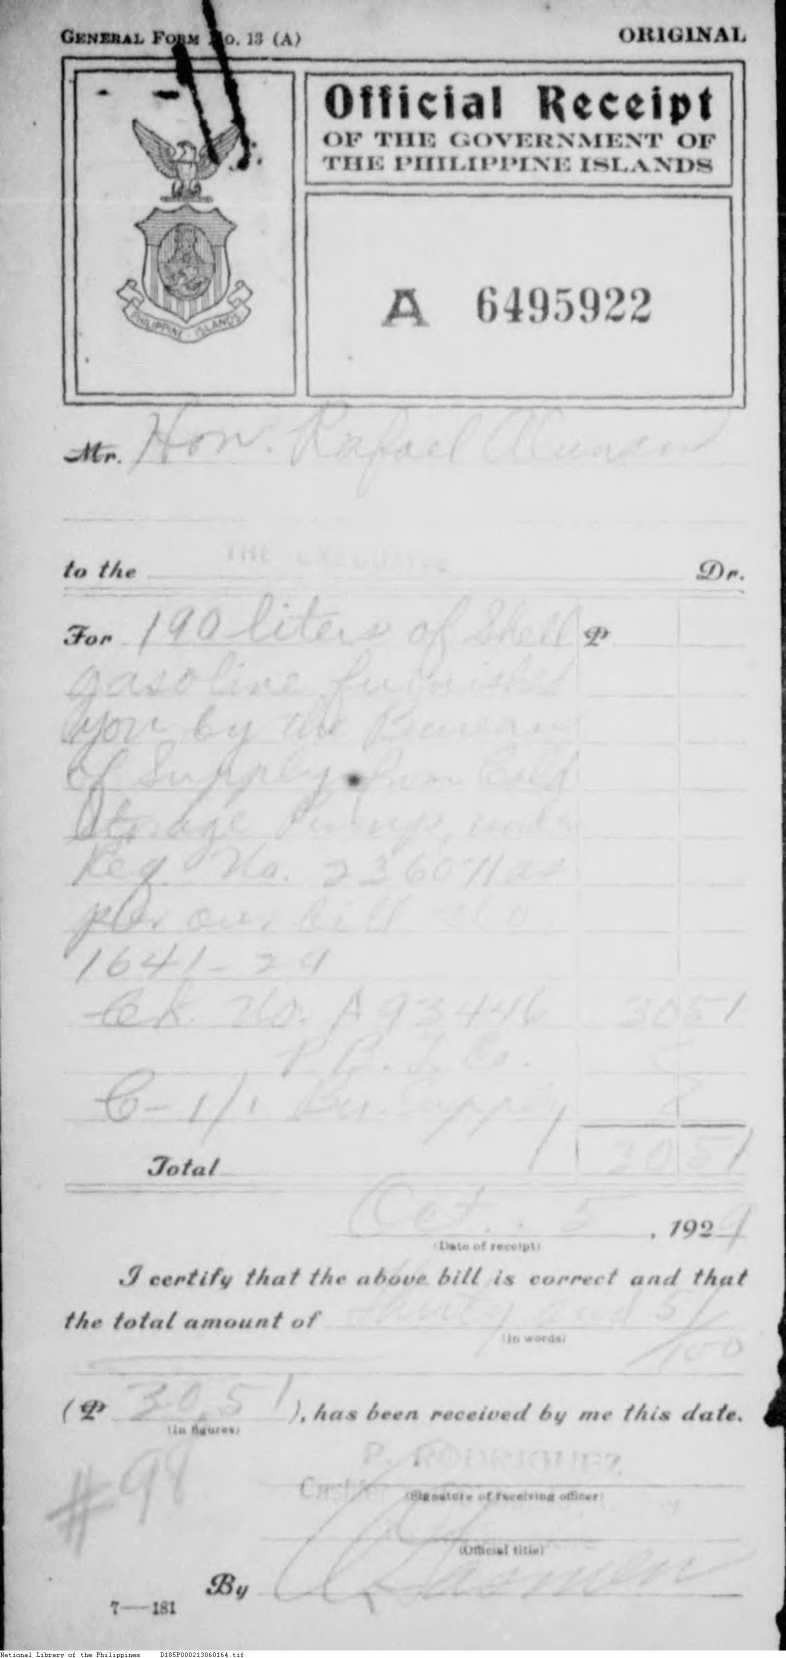 GENERAL FORM No. 13 (A)
ORIGINAL
Official Receipt
OF THE GOVERNMENT OF
THE PHILIPPINE ISLANDS
PHILIPPINE ISLANDS
A 6495922
Mr. Hon. Rafael Alunan
to the THE EXECUTIVE Dr.
For 190 liters of Shell ₱
gasoline furnished
you by the Bureau
of Supply from Cold
Storage Pump, under
Req. No. 236071 as
per our bill No.
1641-29
Ck. No. A 93446 30 51
C-1/1 Bu. Supply
Total 30 51
Oct. 5, 1929
(Date of receipt)
I certify that the above bill is correct and that
the total amount of Thirty and 51/100
(In words)
(₱ 30.51), has been received by me this date.
(In figures)
P. RODRIGUEZ
# 98
Cashier
(Signature of receiving officer)
(Official title)
By
7—181
National Library of the Philippines D185P000213060164.tif